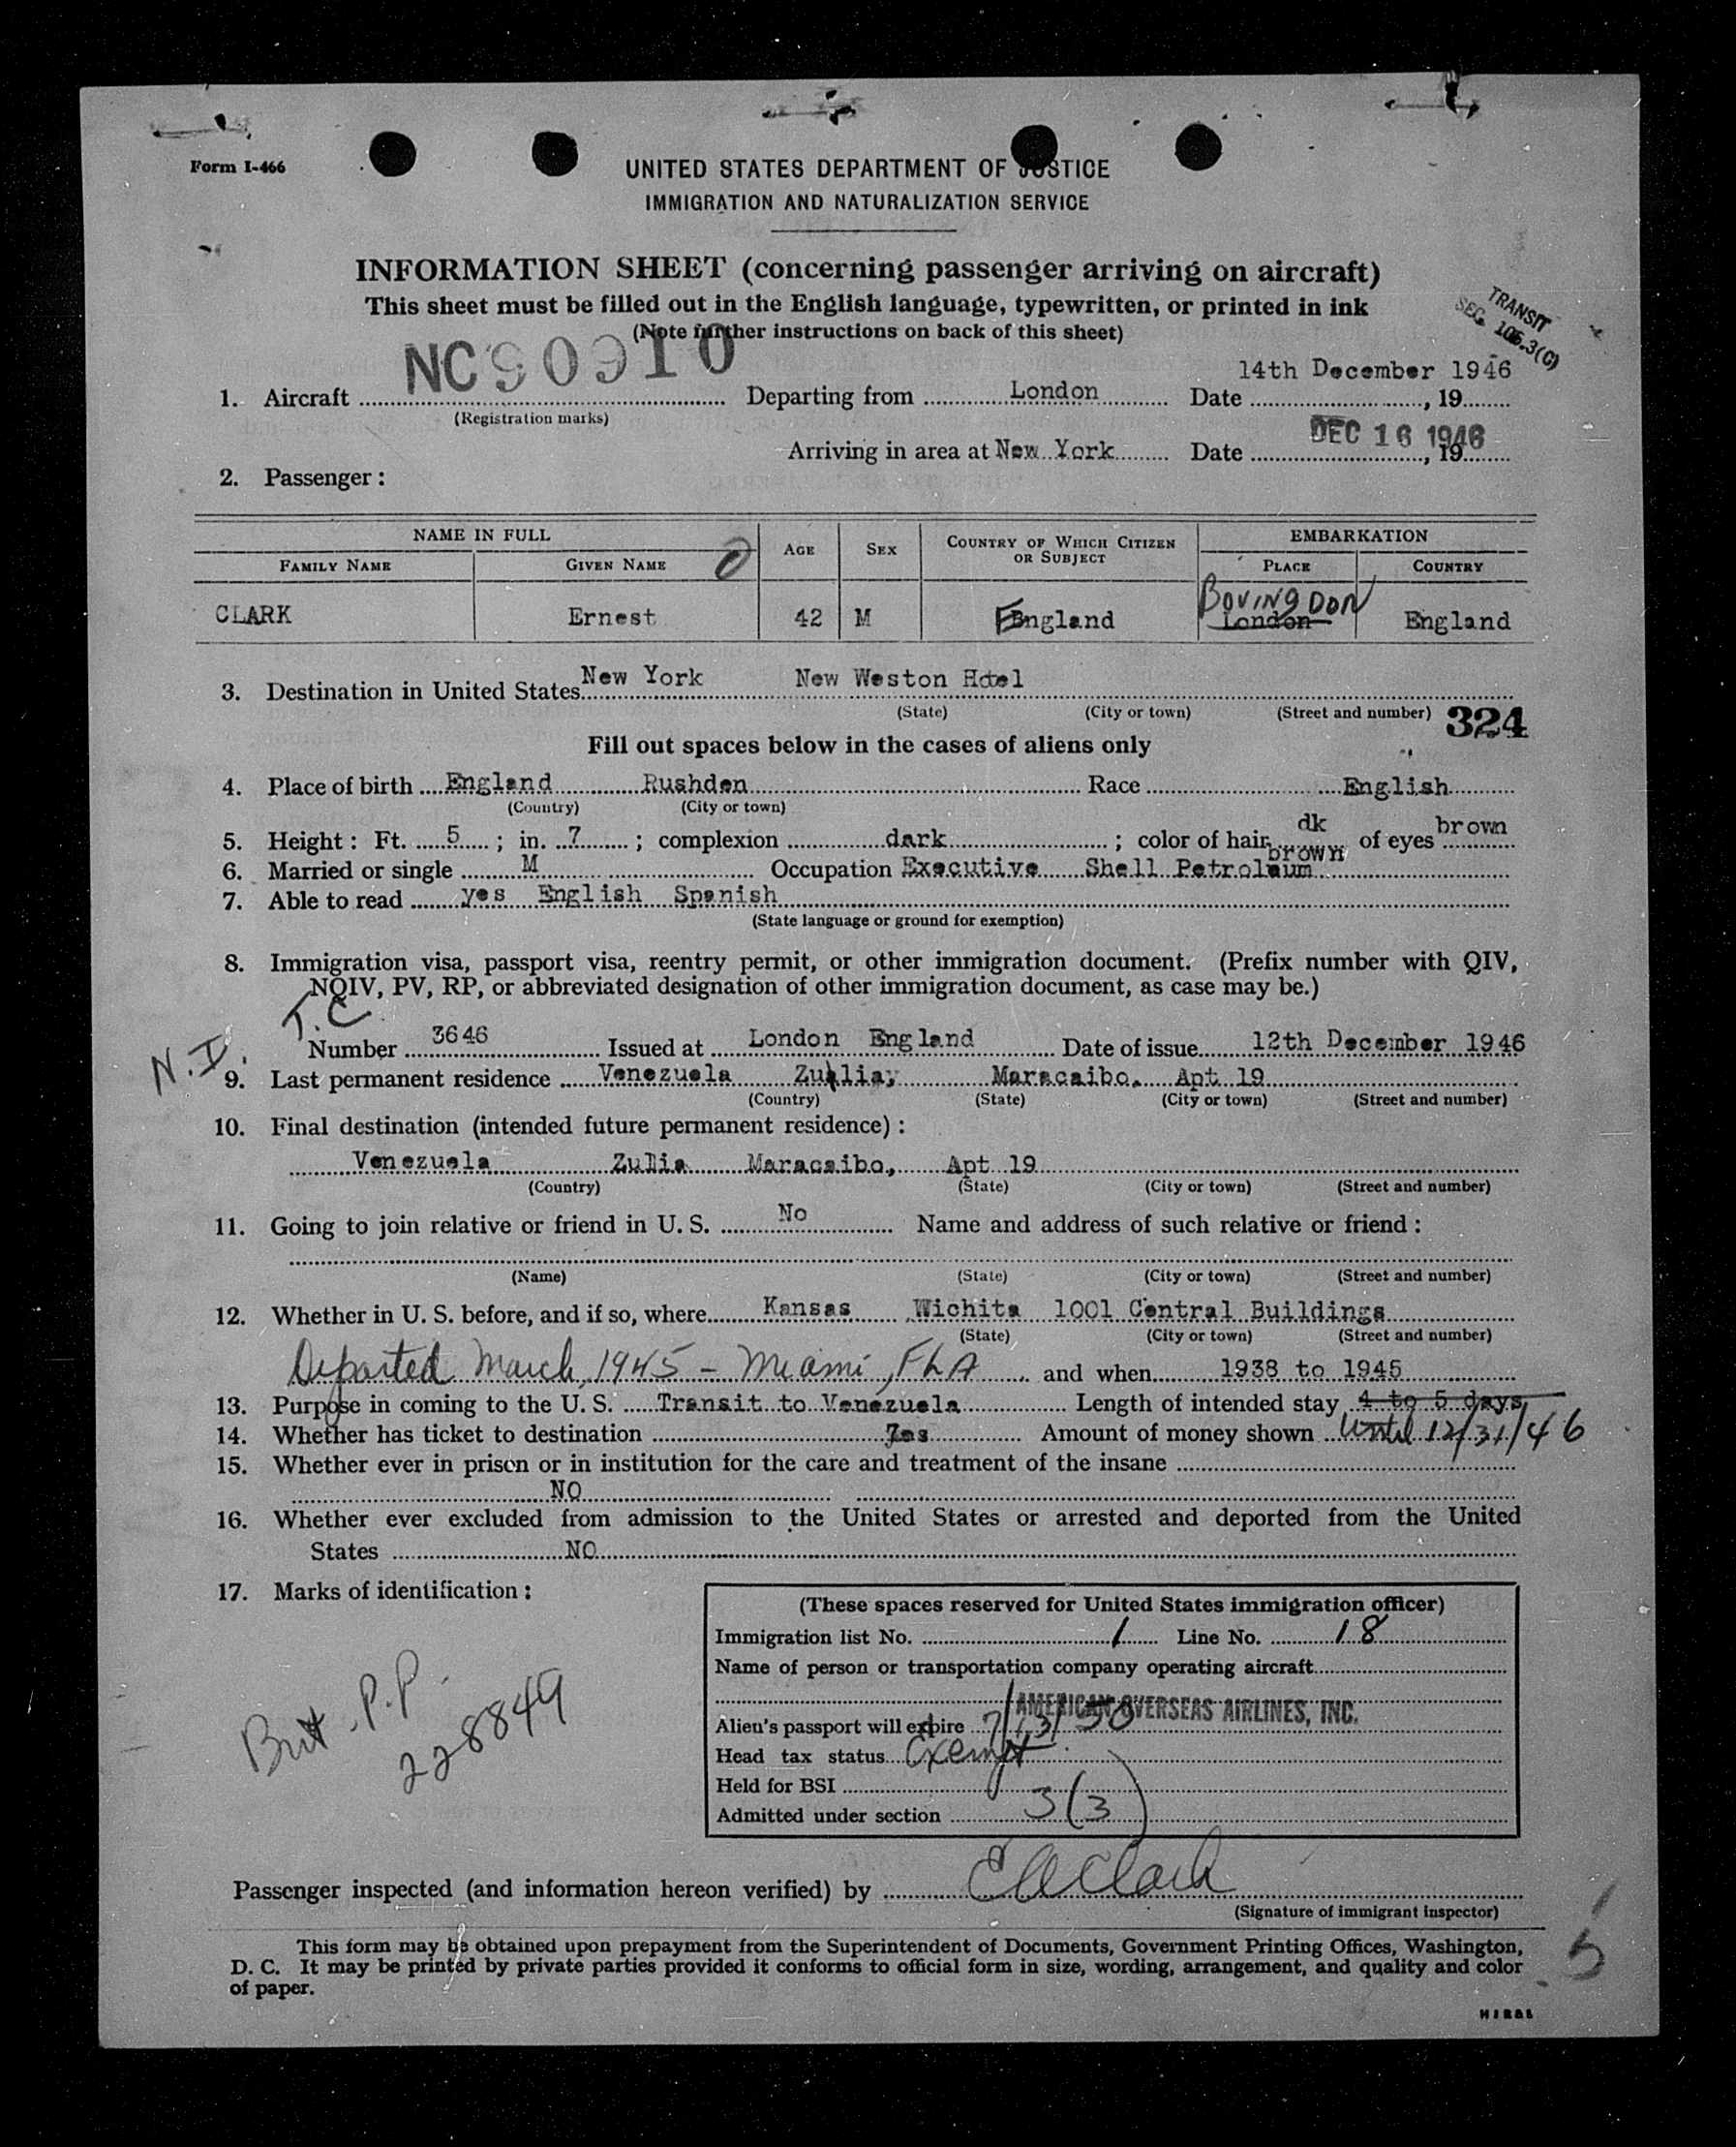 Form I-466
UNITED STATES DEPARTMENT OF JUSTICE
IMMIGRATION AND NATURALIZATION SERVICE
INFORMATION SHEET (concerning passenger arriving on aircraft)
This sheet must be filled out in the English language, typewritten, or printed in ink
(Note further instructions on back of this sheet)
TRANSIT
SEC. 105.3(G)
NC90910
14th December 1946
1. Aircraft Departing from London Date , 19
(Registration marks)
DEC 16 1946
Arriving in area at New York Date , 19
2. Passenger:
NAME IN FULL AGE SEX COUNTRY OF WHICH CITIZEN OR SUBJECT EMBARKATION
FAMILY NAME GIVEN NAME PLACE COUNTRY
BOVINGDON
CLARK Ernest 42 M England London England
3. Destination in United States New York New Weston Hotel
(State) (City or town) (Street and number) 324
Fill out spaces below in the cases of aliens only
4. Place of birth England Rushden Race English
(Country) (City or town)
5. Height: Ft. 5 ; in. 7 ; complexion dark ; color of hair dk brown of eyes brown
6. Married or single M Occupation Executive Shell Petroleum
7. Able to read yes English Spanish
(State language or ground for exemption)
8. Immigration visa, passport visa, reentry permit, or other immigration document. (Prefix number with QIV,
NQIV, PV, RP, or abbreviated designation of other immigration document, as case may be.)
T.C
N.I.
Number 3646 Issued at London England Date of issue 12th December 1946
9. Last permanent residence Venezuela Zullia, Maracaibo, Apt 19
(Country) (State) (City or town) (Street and number)
10. Final destination (intended future permanent residence):
Venezuela Zulia Maracaibo, Apt 19
(Country) (State) (City or town) (Street and number)
11. Going to join relative or friend in U. S. No Name and address of such relative or friend:
(Name) (State) (City or town) (Street and number)
12. Whether in U. S. before, and if so, where Kansas Wichita 1001 Central Buildings
(State) (City or town) (Street and number)
Departed March, 1945 - Miami, FLA and when 1938 to 1945
13. Purpose in coming to the U. S. Transit to Venezuela Length of intended stay 4 to 5 days
14. Whether has ticket to destination Yes Amount of money shown until 12/31/46
15. Whether ever in prison or in institution for the care and treatment of the insane
NO
16. Whether ever excluded from admission to the United States or arrested and deported from the United
States NO
17. Marks of identification:
Brit. P.P.
228849
(These spaces reserved for United States immigration officer)
Immigration list No. 1 Line No. 18
Name of person or transportation company operating aircraft
AMERICAN OVERSEAS AIRLINES, INC.
Alien's passport will expire 7/13/50
Head tax status Exempt
Held for BSI
Admitted under section 3(3)
Passenger inspected (and information hereon verified) by
(Signature of immigrant inspector)
This form may be obtained upon prepayment from the Superintendent of Documents, Government Printing Offices, Washington,
D. C. It may be printed by private parties provided it conforms to official form in size, wording, arrangement, and quality and color
of paper.
5